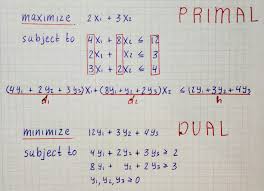 maximize 2x₁ + 3x₂ PRIMAL
subject to 4x₁ + 8x₂ ≤ 12
2x₁ + x₂ ≤ 3
3x₁ + 2x₂ ≤ 4
(4y₁ + 2y₂ + 3y₃)x₁ + (8y₁ + y₂ + 2y₃)x₂ ≤ 12y₁ + 3y₂ + 4y₃
d₁ d₂ h
minimize 12y₁ + 3y₂ + 4y₃ DUAL
subject to 4y₁ + 2y₂ + 3y₃ ≥ 2
8y₁ + y₂ + 2y₃ ≥ 3
y₁, y₂, y₃ ≥ 0